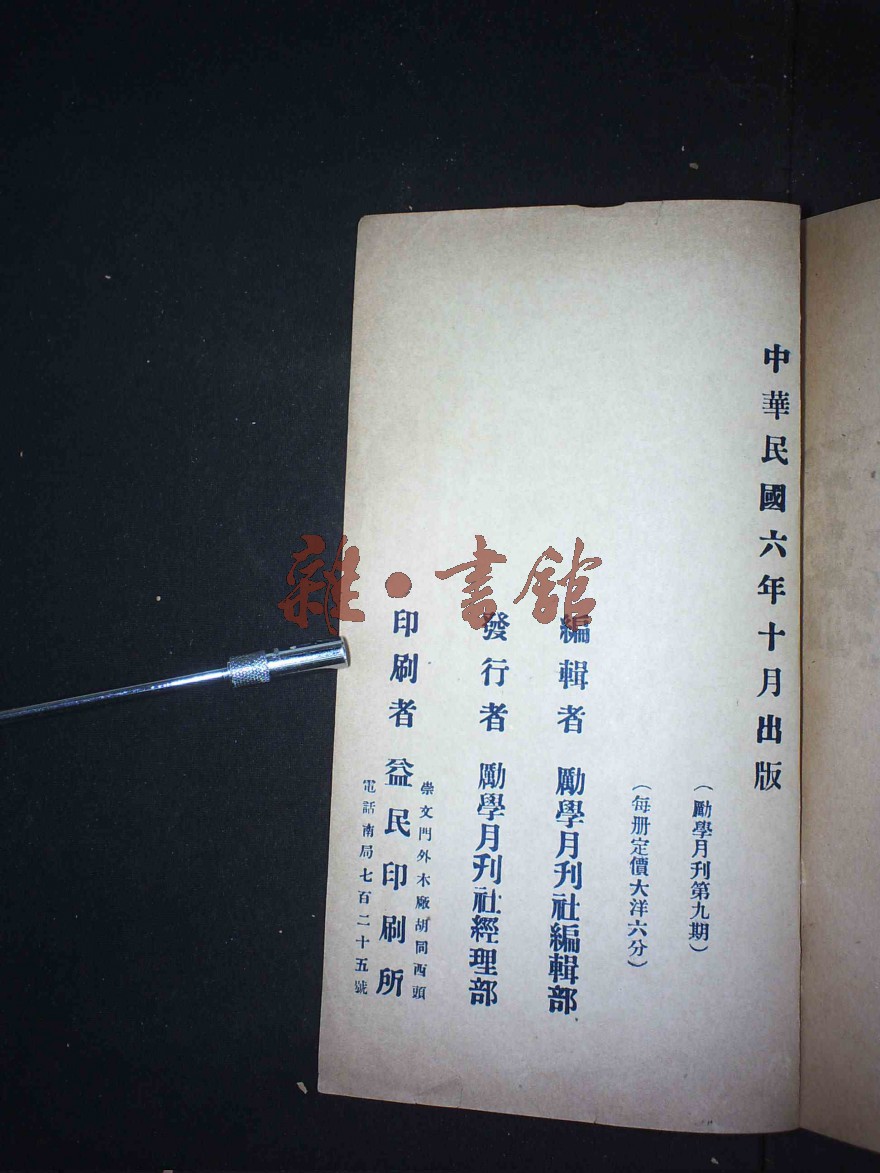 中華民國六年十月出版
（勵學月刊第九期）
（每册定價大洋六分）
編輯者 勵學月刊社編輯部
發行者 勵學月刊社經理部
崇文門外木廠胡同西頭
印刷者 益民印刷所
電話南局七百二十五號
雜·書館